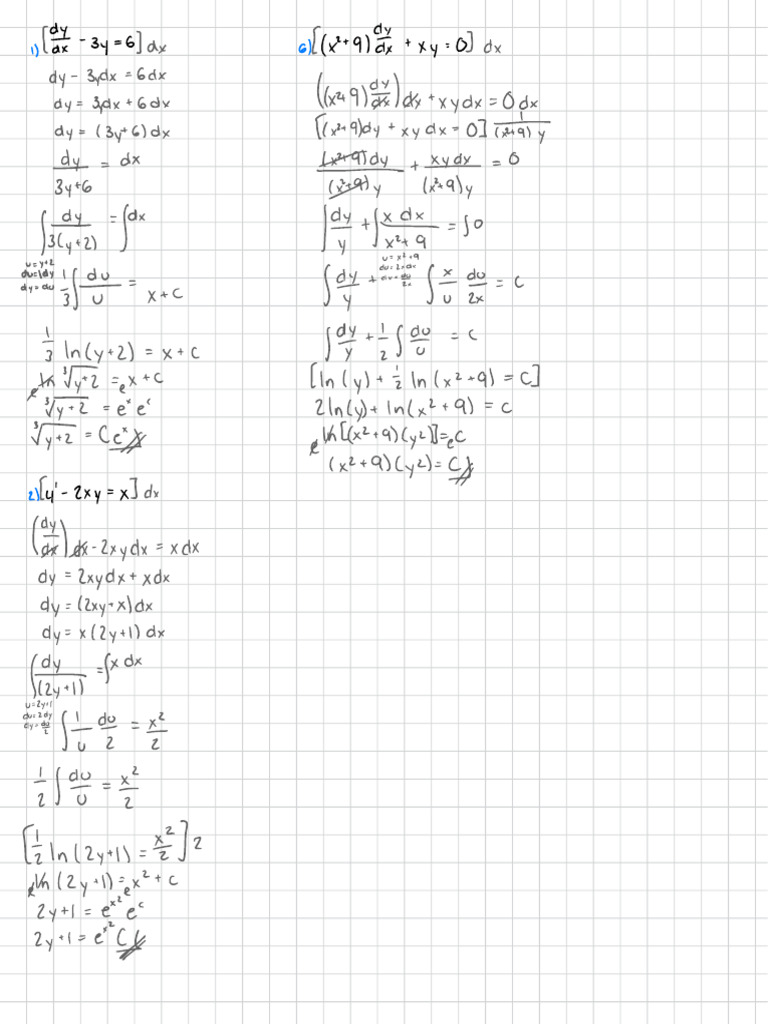 1) [dy/dx - 3y = 6] dx
dy - 3ydx = 6dx
dy = 3ydx + 6dx
dy = (3y+6)dx
dy/(3y+6) = dx
∫ dy/(3(y+2)) = ∫dx
u=y+2
du=1dy
dy=du
1/3 ∫ du/u = x+c
1/3 ln(y+2) = x+c
e^ln ∛(y+2) = e^x+c
∛(y+2) = e^x e^c
∛(y+2) = Ce^x
2) [y' - 2xy = x] dx
(dy/dx) dx - 2xydx = xdx
dy = 2xydx + xdx
dy = (2xy+x)dx
dy = x(2y+1)dx
∫ dy/(2y+1) = ∫x dx
u=2y+1
du=2dy
dy=du/2
∫ 1/u du/2 = x²/2
1/2 ∫ du/u = x²/2
[1/2 ln(2y+1) = x²/2] 2
e^ln(2y+1) = e^x²+c
2y+1 = e^x² e^c
2y+1 = e^x² C
6) [(x²+9) dy/dx + xy = 0] dx
((x²+9) dy/dx) dx + xydx = 0dx
[(x²+9)dy + xydx = 0] 1/((x²+9)y)
(x²+9)dy/((x²+9)y) + xydx/((x²+9)y) = 0
∫ dy/y + ∫ x dx/(x²+9) = ∫0
u=x²+9
du=2xdx
dx=du/2x
∫ dy/y + ∫ x/u du/2x = c
∫ dy/y + 1/2 ∫ du/u = c
[ln(y) + 1/2 ln(x²+9) = c]
2ln(y) + ln(x²+9) = c
e^ln[(x²+9)(y²)] = e^c
(x²+9)(y²) = C